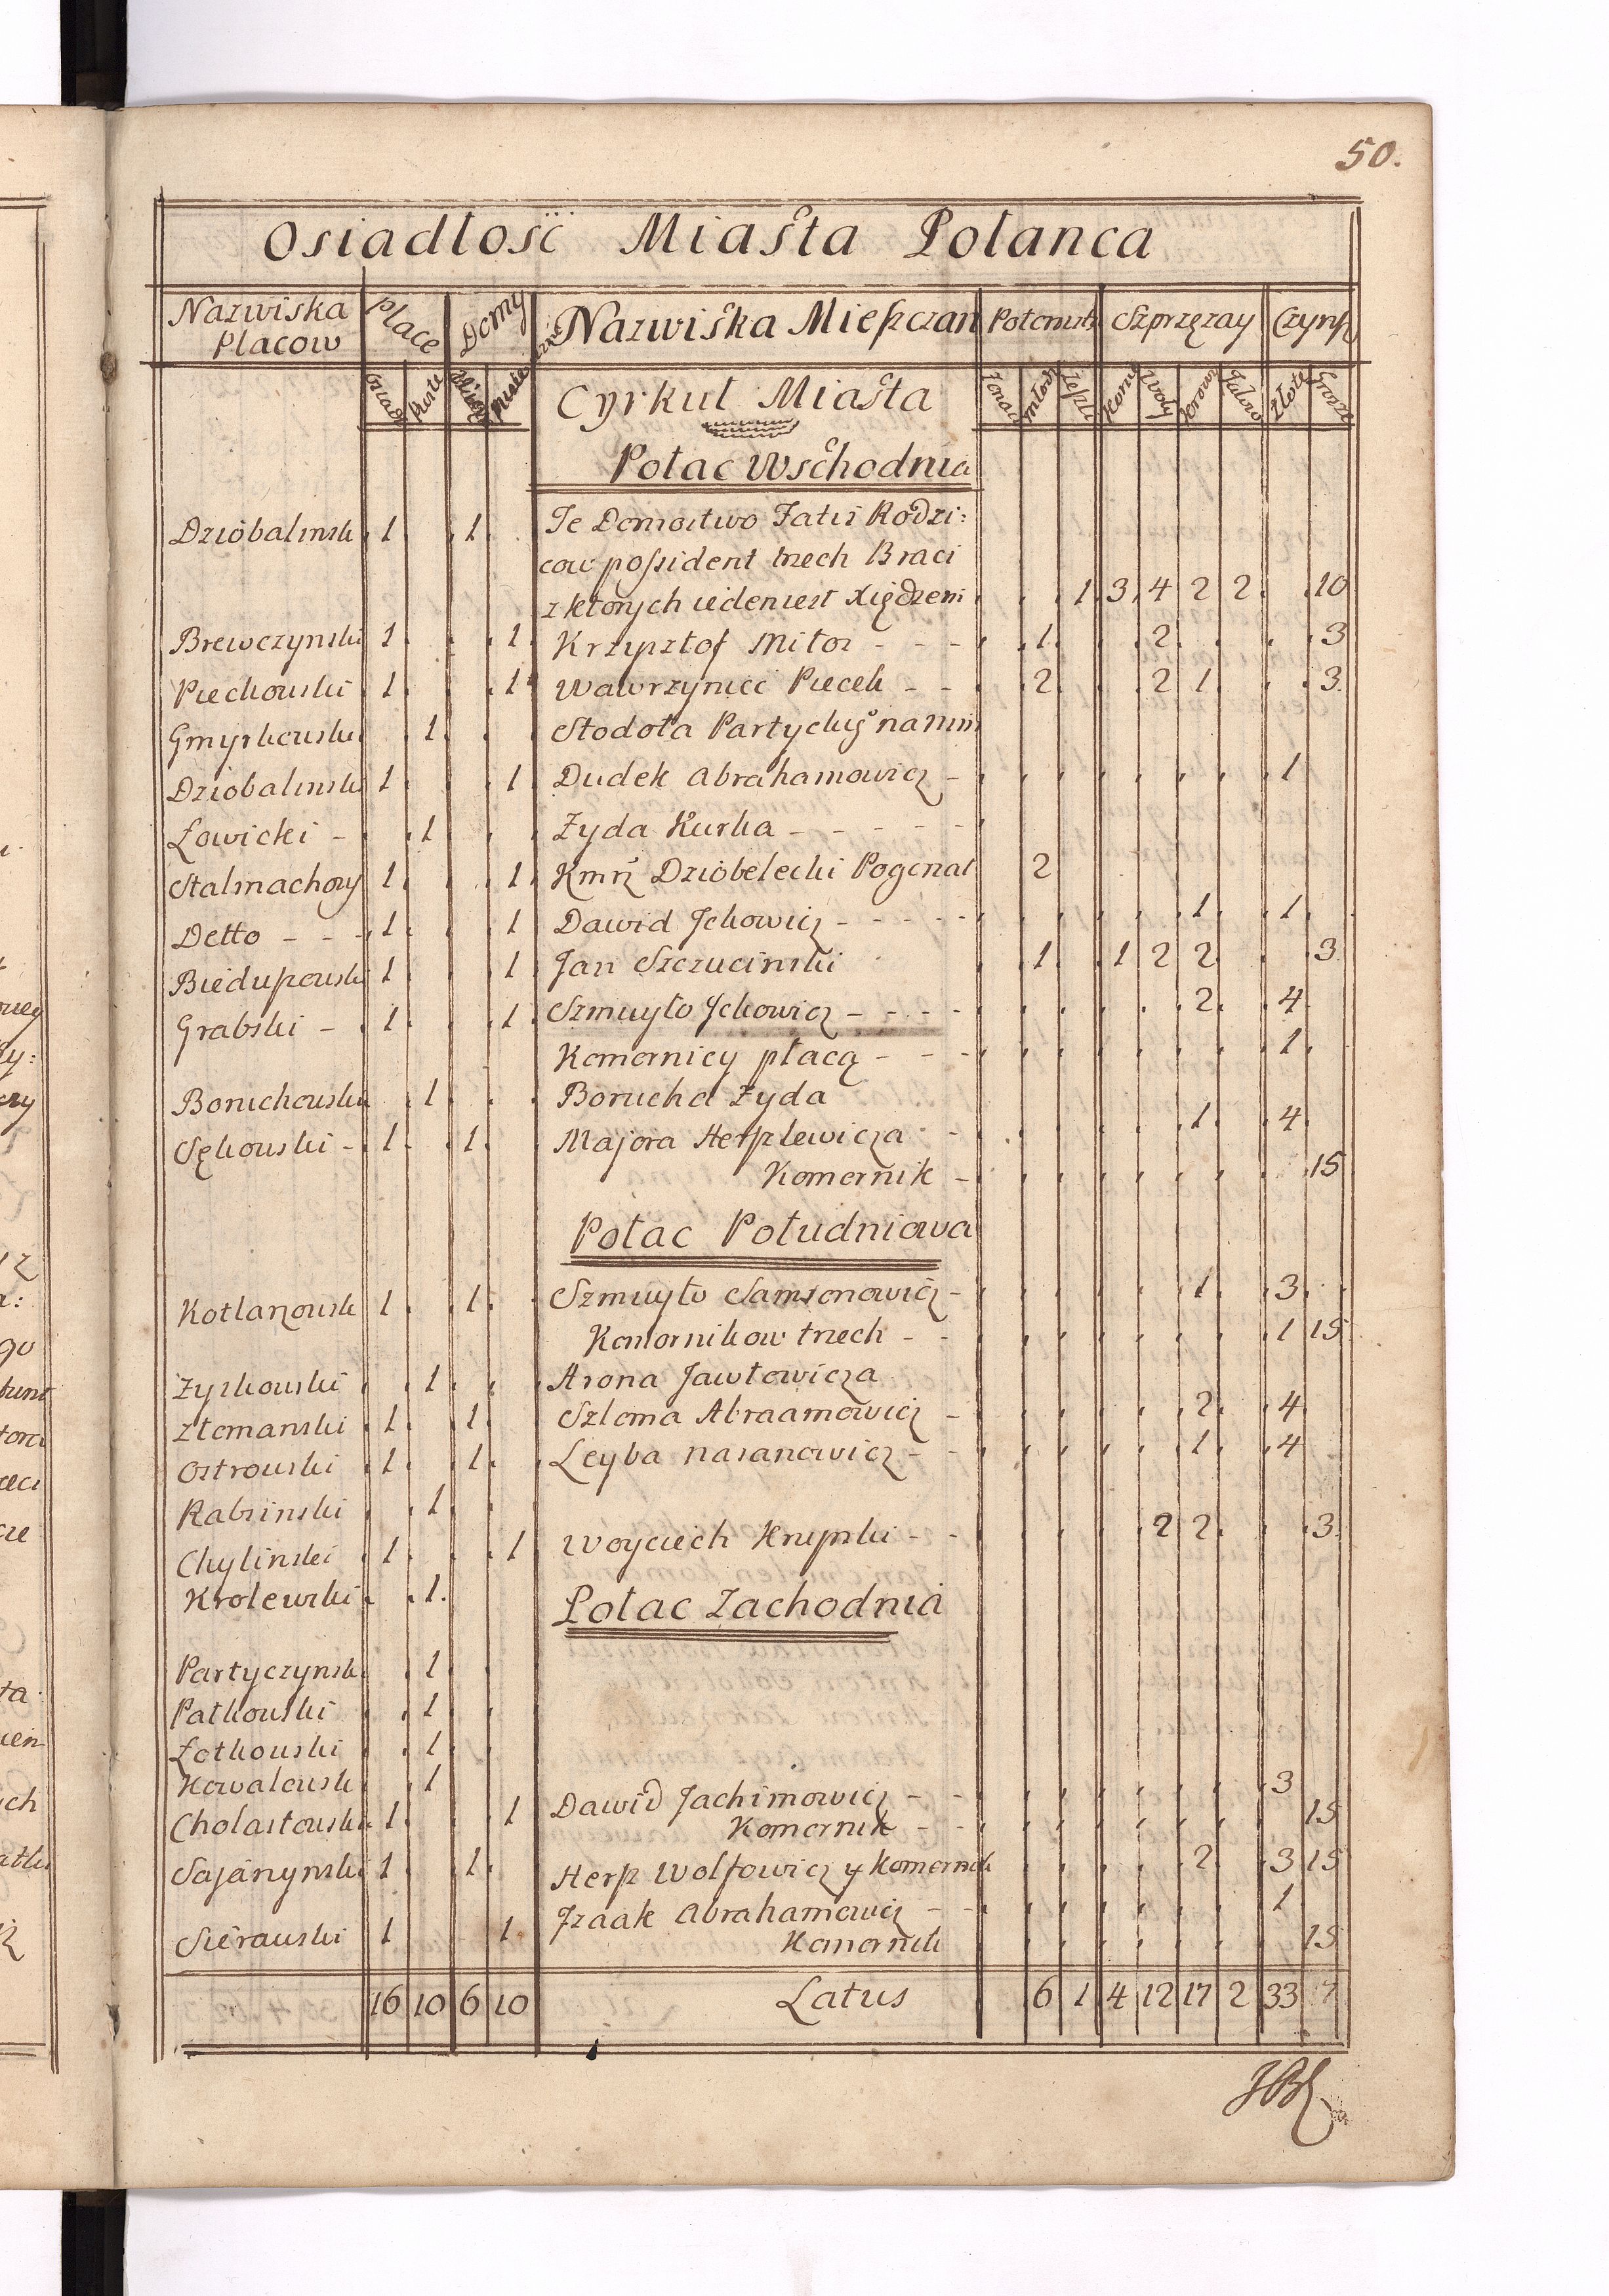 50.
Osiadłośċ Miasta Połanca
Nazwiska Placow Place Domy Nazwiska Mieszczan Potomstt Szprzęzay Czynsz
Osiad Puste Miey Cyrkuł Miasta Zonaci Młodz Konie Woły Krowy Jałow Złote Grosze
Połac Wschodnia
Dziobalinsk 1 1 Te Domostwo Fatis Rodzi:
cow possident trzech Braci
z ktorych ieden iest Xiędzem 1 3 4 2 2 10
Brewczynski 1 1 Krzysztof Mitos - - - 1 2 3
Piechowski 1 1 Wawrzyniec Piecek - - 2 2 1 3
Gmyrkowski 1 Stodoła Partyckiey na nim
Dziobalinski 1 1 Dudek Abrahamowicz - 1
Łowicki - 1 Zyda Kurka - - - - -
Stalmachowy 1 1 Kmń Dziobelecki Pogonał 2
Detto - - - 1 1 Dawid Jckowicz - - - - - 1 1
Biedupowski 1 1 Jan Szczucinski 1 1 2 2 3
Grabski - 1 1 Szmuyło Jckowicz - - - - 2 4
Komornicy płacą - - - 1
Boruchowski 1 Borucha Zyda
Sękowski - 1 1 Majora Herszlewicza - 1 4
Komornik - 15
Połac Południowa
Kotlarzowsk 1 1 Szmuyło Samsonowicz - 1 3
Komornikow trzech - - 1 15
Zyskowski 1 Arona Jawłowicza
Złomanski 1 1 Szloma Abraamowicz - 2 4
Ostrowski 1 1 Leyba Nasanowicz - - 1 4
Rabsinski 1
Chylinski 1 1 Woyciech Krupski - - 2 2 3
Krolewski 1
Połac Zachodnia
Partyczynsk 1
Patkowski 1
Łotkowski 1
Kowalowsk 1
Cholastowski 1 1 Dawid Jachimowicz - - 3
Komornik - - 15
Sajanynski 1 1 Hersz Wolfowicz y Komornik 2 3 15
Sierawski 1 1 Jzaak Abrahamowicz - - 1
Komornik 15
16 10 6 10 Latus 6 1 4 12 17 2 33 7